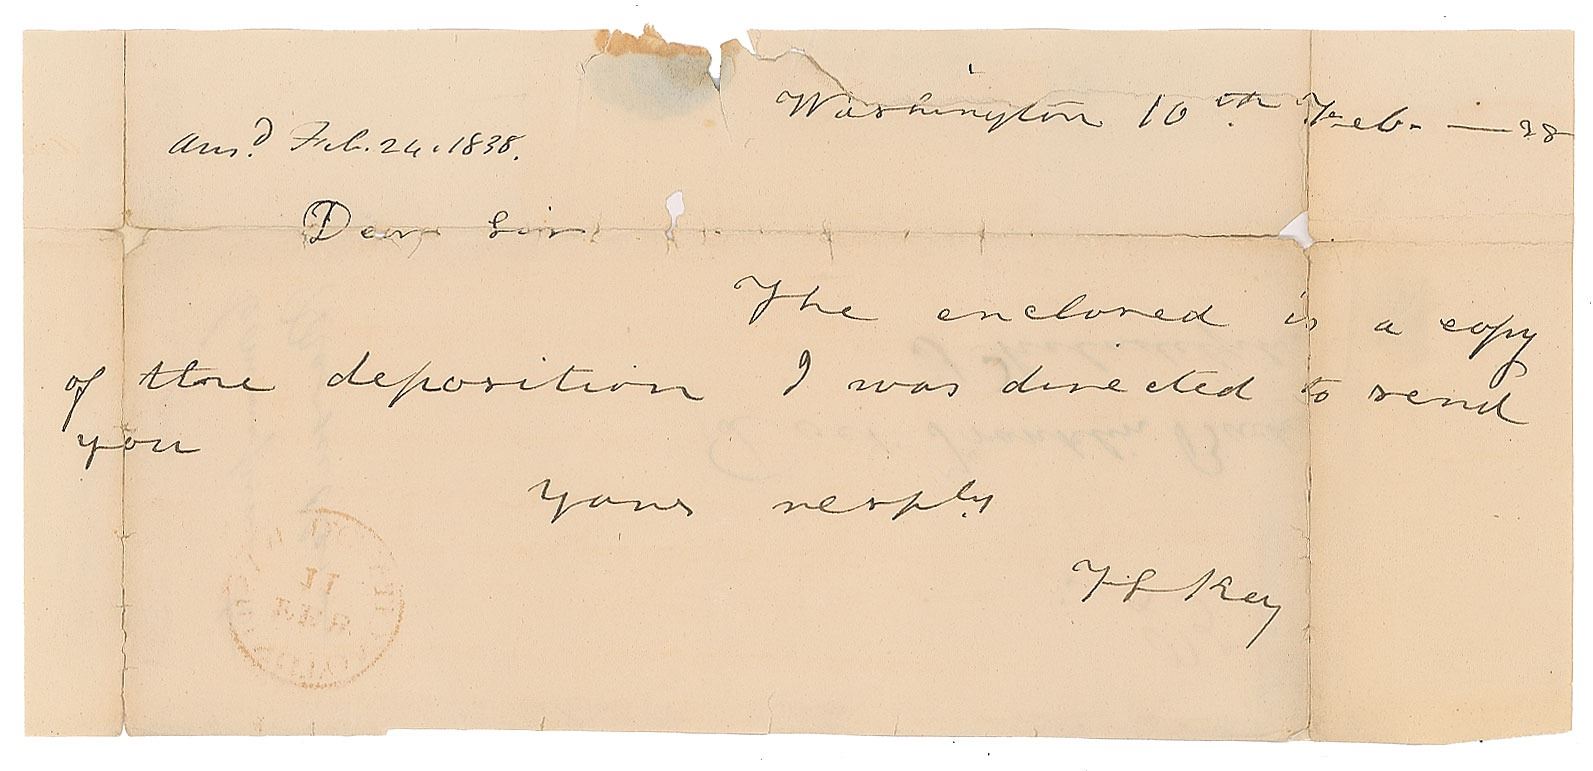 Washington 10th Feb. — 38
Ansd. Feb. 24. 1838.
Dear Sir
The enclosed is a copy
of the deposition I was directed to send
you
Yours resply
F S Key
11
FEB